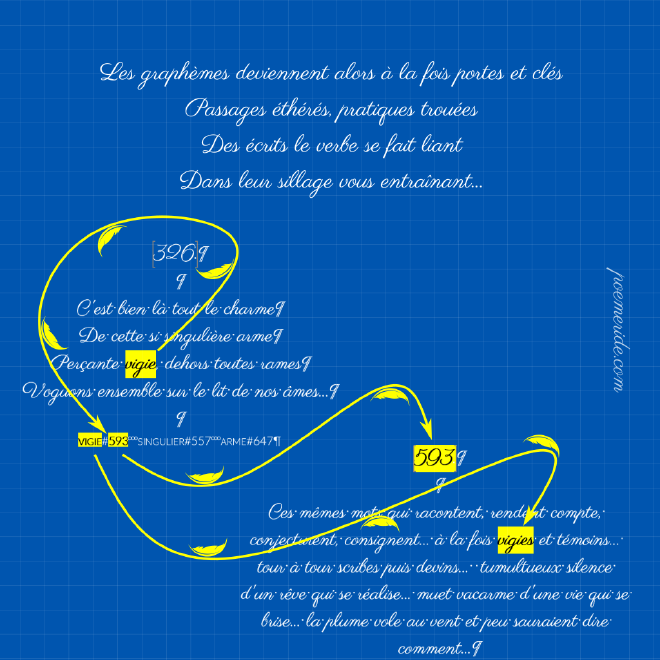 Les graphèmes deviennent alors à la fois portes et clés
Passages éthérés, pratiques trouées
Des écrits le verbe se fait liant
Dans leur sillage vous entraînant...
[326]¶
¶
C'est bien là tout le charme¶
De cette si singulière arme¶
Perçante vigie, dehors toutes rames¶
Voguons ensemble sur le lit de nos âmes...¶
¶
VIGIE#593°°°SINGULIER#557°°°ARME#647¶
593¶
¶
Ces mêmes mots qui racontent, rendent compte,
conjecturent, consignent... à la fois vigies et témoins...
tour à tour scribes puis devins... tumultueux silence
d'un rêve qui se réalise... muet vacarme d'une vie qui se
brise... la plume vole au vent et peu sauraient dire
comment...¶
poemeride.com